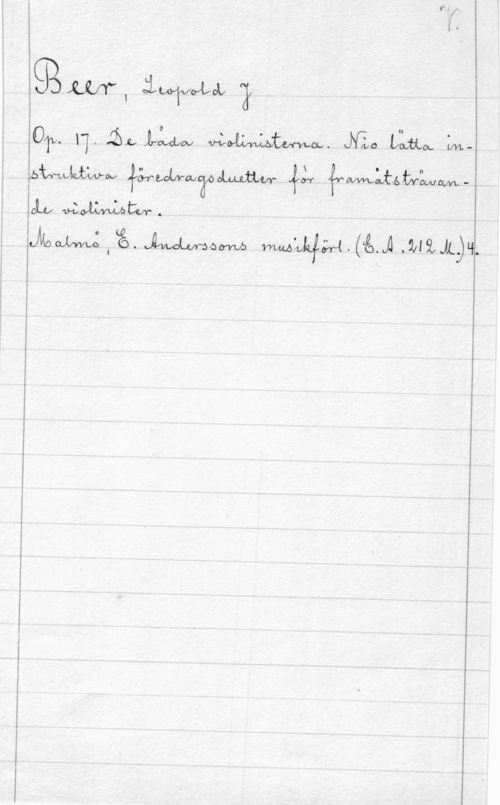 Beer, Leopold J
Op. 17. De båda violinisterna. Nio lätta in-
struktiva föredragsduetter för framåtsträvan-
de violinister.
Malmö, E. Anderssons musikförl. (E.A. 212 M.) 4.